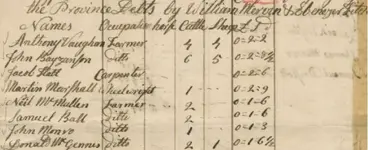 the Province Debts by William Mercer & Ebenezer Fitch
Names Occupation horse Cattle Sheep £
Anthony Vaughan Farmer 4 4 0=2=2
John Bayganson Ditto 6 5 0=2=8½
Jacob Hatt Carpenter 0=2=6
Martin Marshall Wheelwright 1 0=2=9
Neil McMullen Farmer 2 0=1=6
Samuel Ball Ditto 2 0=1=6
John Monro Ditto 1 0=1=3
Donald McGennis Ditto 2 1 0=1=6½